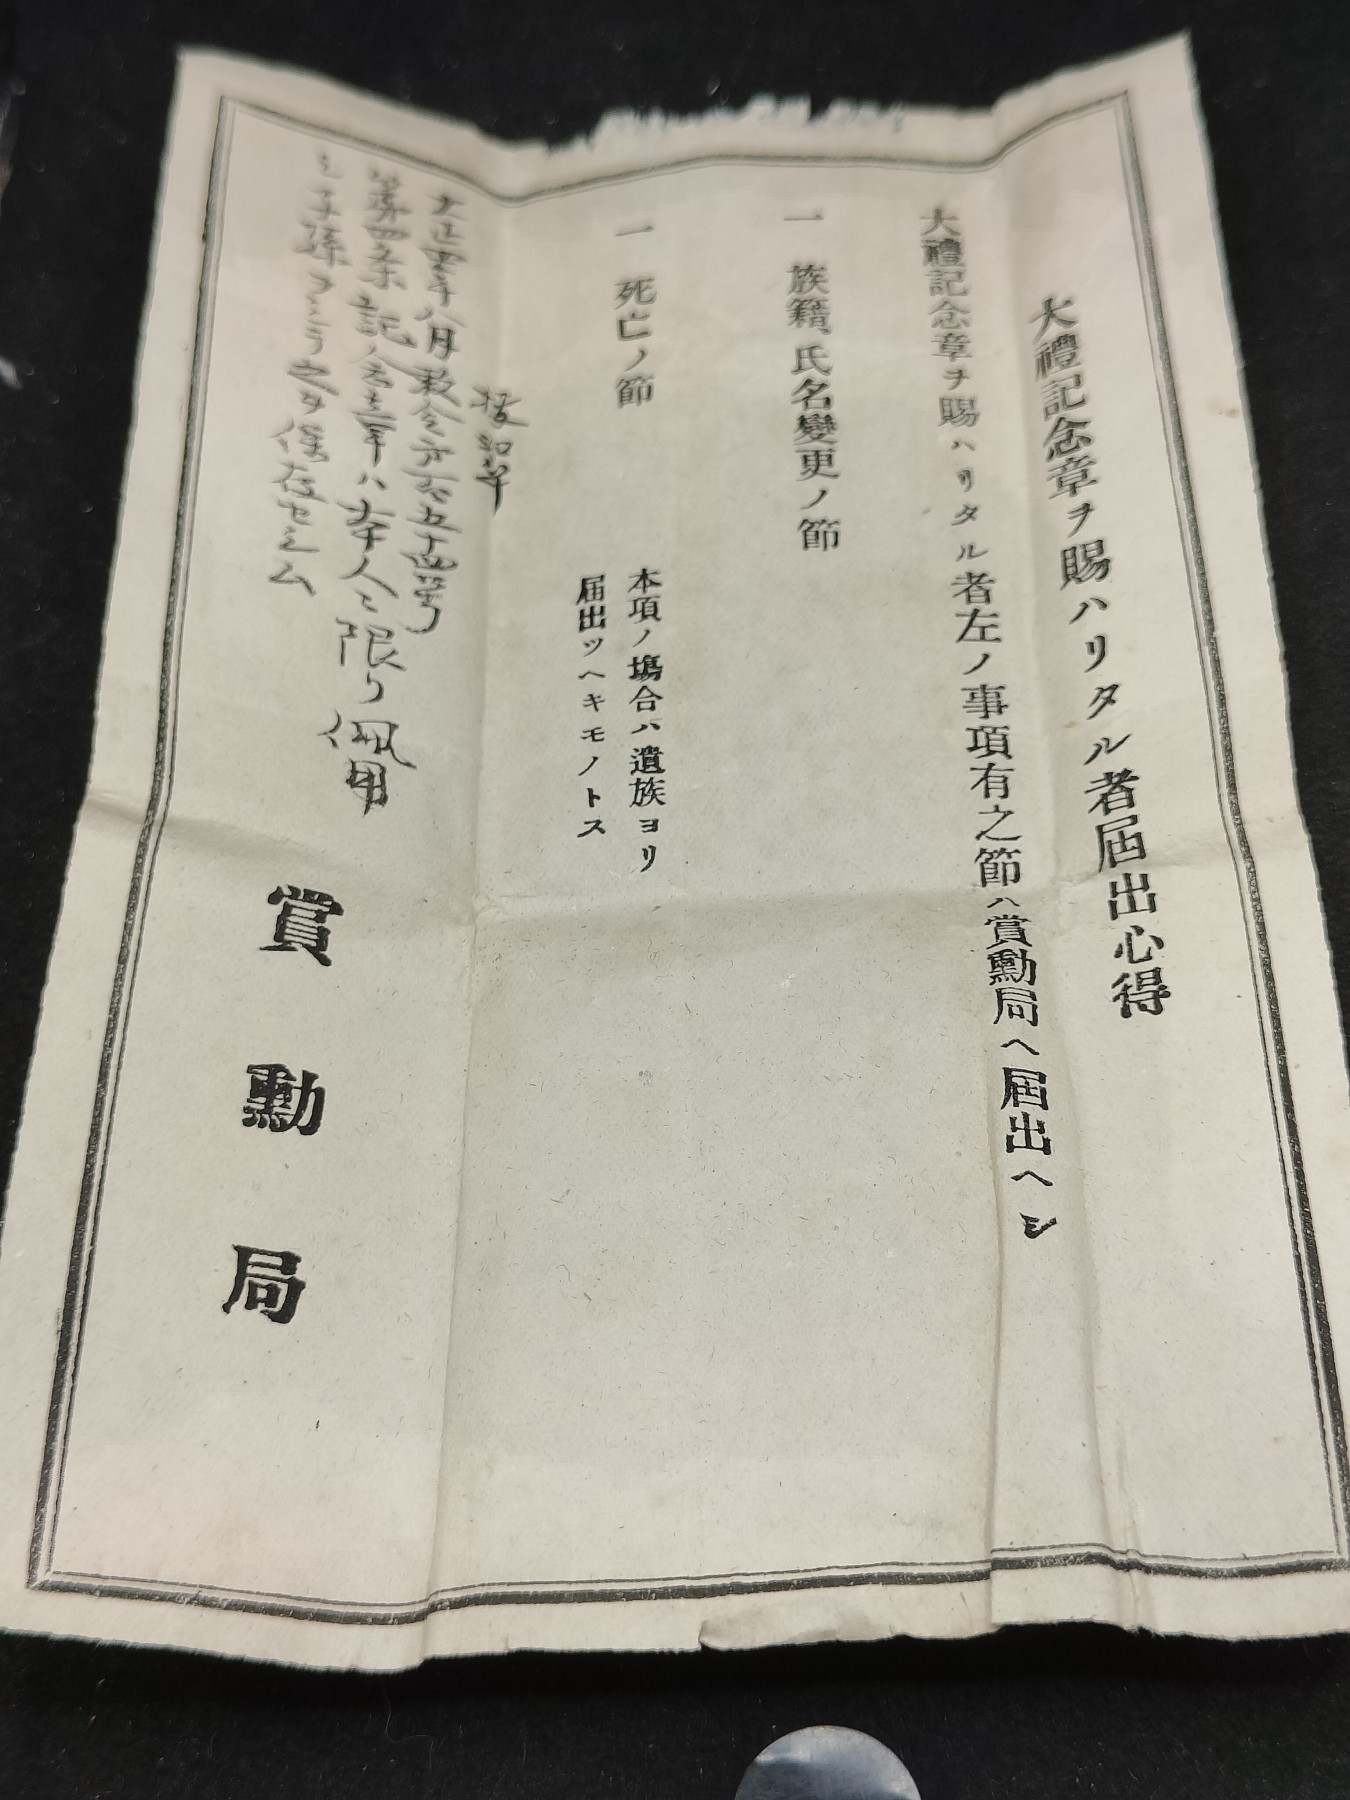 大禮記念章ヲ賜ハリタル者届出心得
大禮記念章ヲ賜ハリタル者左ノ事項有之節ハ賞勳局ヘ届出ヘシ
一 族籍、氏名變更ノ節
一 死亡ノ節
本項ノ塲合ハ遺族ヨリ
届出ツヘキモノトス
大正四年八月敕令第百五十四号
第四条 記念章ハ本人ニ限リ佩用
シ子孫ヲシテ之ヲ保存セシム
賞勳局